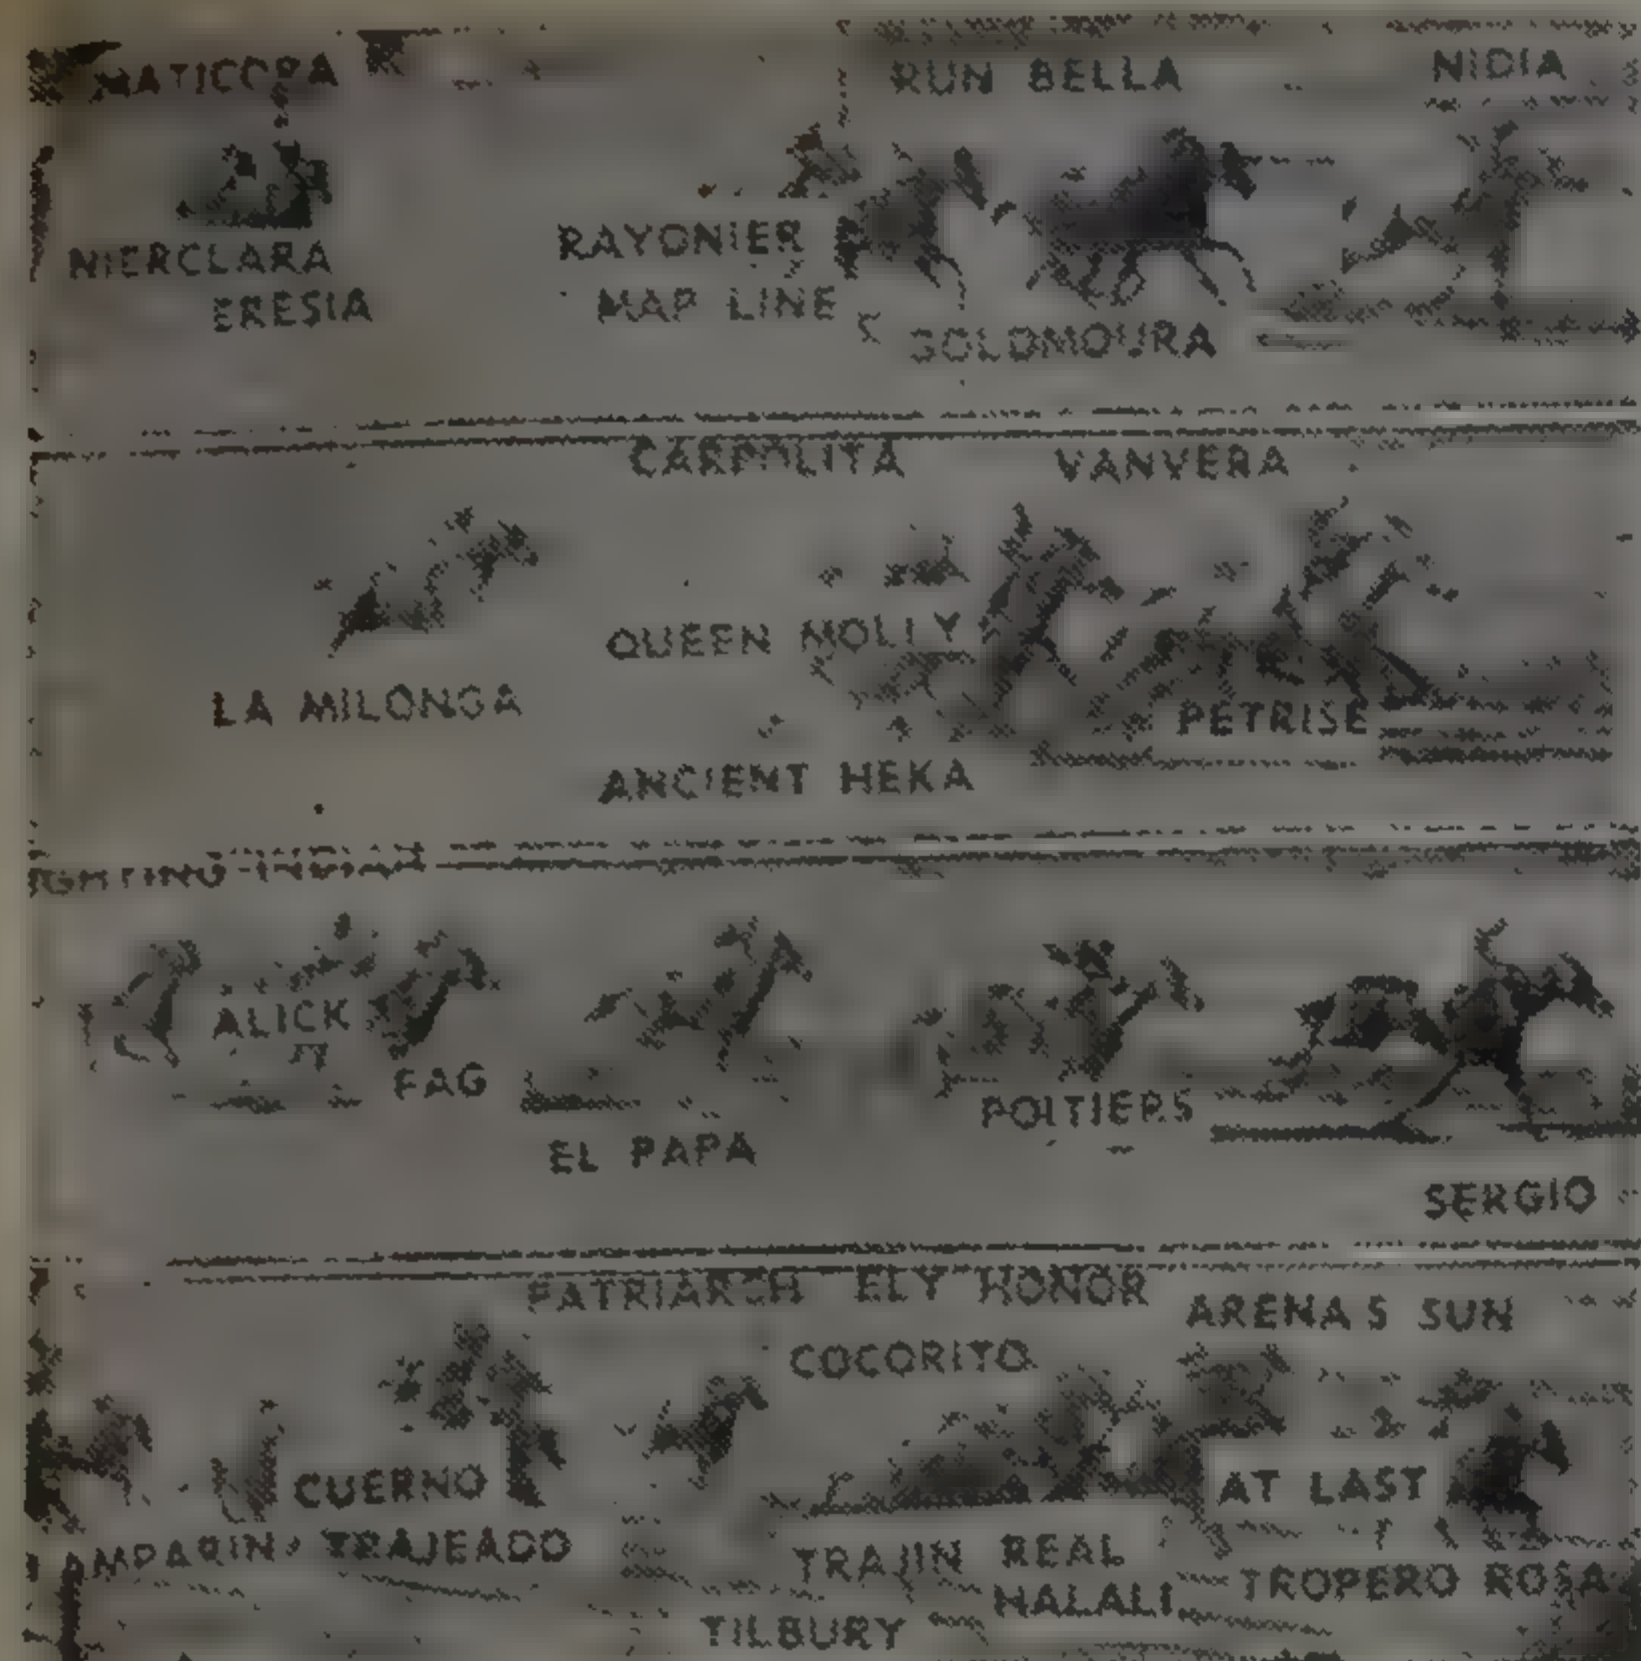 MATICORA
RUN BELLA
NIDIA
NIERCLARA
ERESIA
RAYONIER
MAP LINE
SOLDMOURA
CARPOLITA
VANVERA
QUEEN MOLLY
LA MILONGA
PETRISE
ANCIENT HEKA
ALICK
FAG
POITIERS
EL PAPA
SERGIO
PATRIARCH
ELY HONOR
ARENA S SUN
COCORITO
CUERNO
AT LAST
TRAJEADO
TRAJIN
REAL
HALALI
TROPERO ROSA
TILBURY